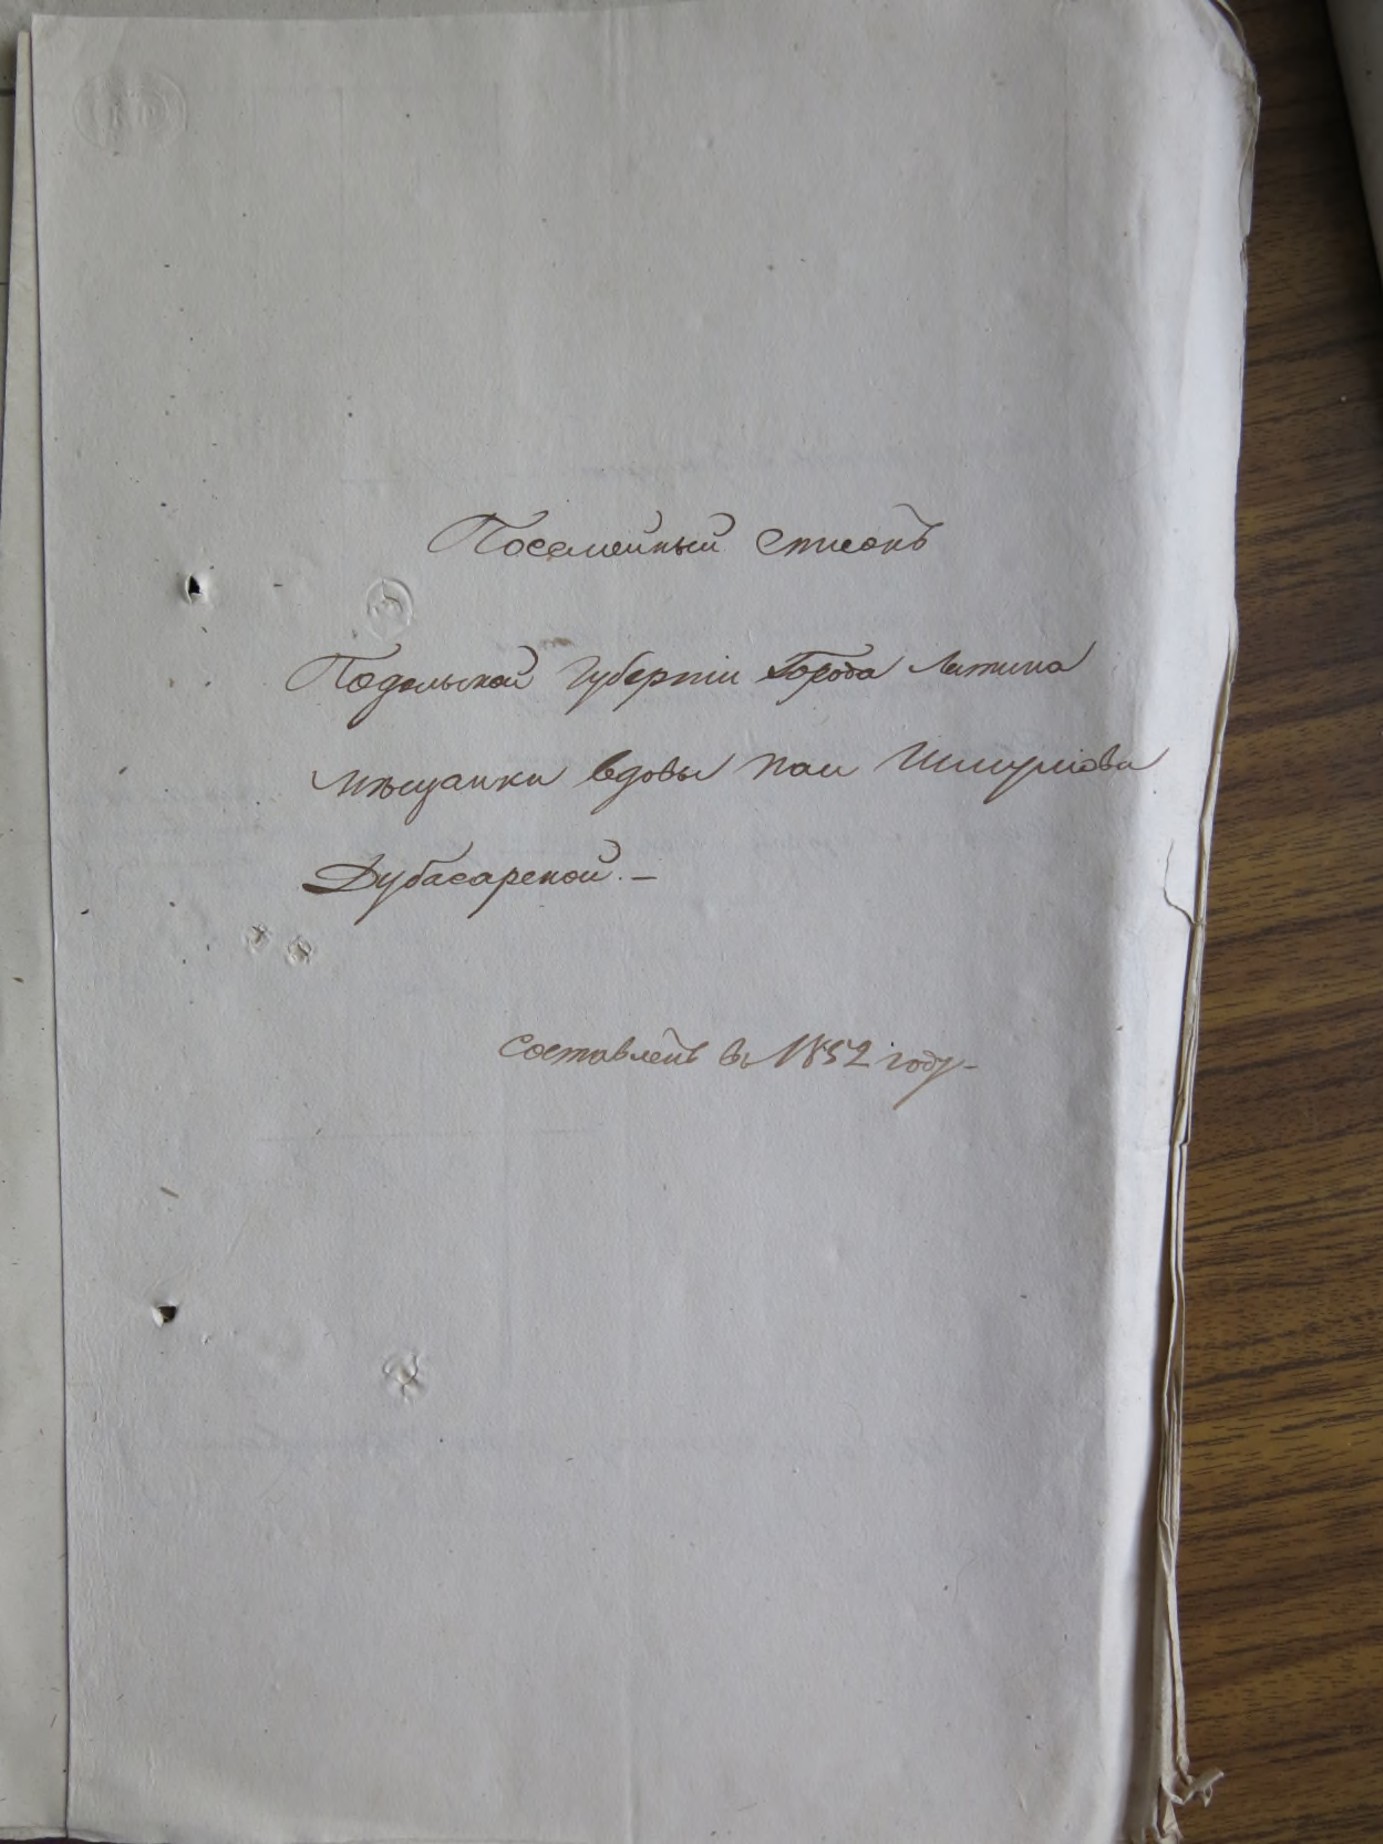 Посемейный Списокъ
Подольской Губерніи Города Летича
мѣщанки вдовы
Дубасарской. —
Составленъ въ 1852 году —